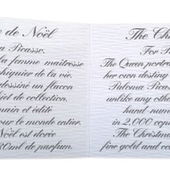 de Noël
Picasso.
femme maîtresse
chiquier de la vie.
dessiné un flacon
de collection.
main et édité
pour le monde entier.
Noël est dorée
20ml de parfum.
The Ch
For
The Queen portre
her own destiny
Paloma Pica
unlike any othe
hand num
in 2.000 cop
The Christm
fine gold and co